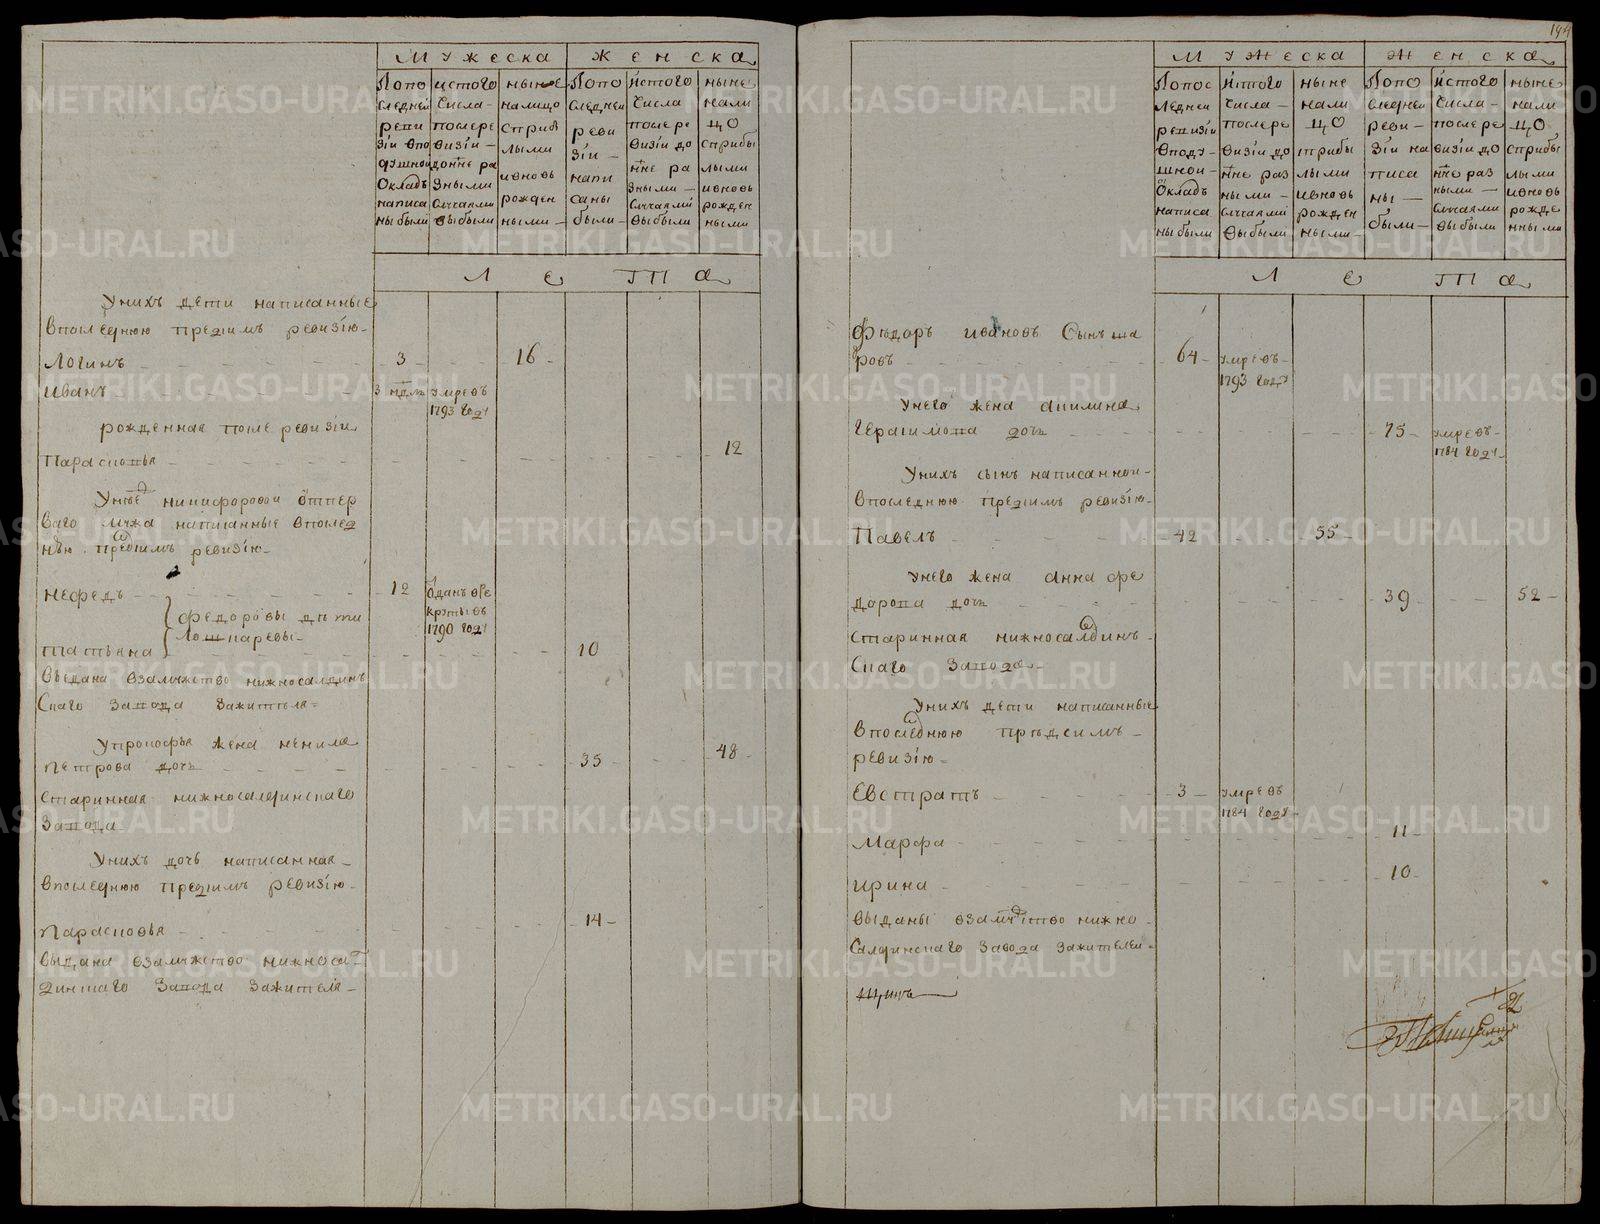 Мужеска
Женска
Попо
следней
реви
зіи впо
душной
окладъ
написа
ны были
истого
числа
послере
визіи
донне ра
зными
случаями
выбыли
ныне
налицо
сприб
лыми
ивновь
рожден
ными
Попо
следней
реви
зіи
напи
саны
были
истого
числа
послере
визіи до
нне ра
зными
случаями
выбыли
ныне
нали
цо
сприбы
лыми
ивновь
рожден
ными
Лета
Унихъ дети написанные
впоследнюю предсимъ ревизію
Логинъ 3 16
Иванъ 3 ндл умре въ
1793 году
рожденная после ревизіи
Парасковья 12
Унее никифоровой отпер
ваго мужа написанные впослед
нюю предсимъ ревизію
Нефедъ 12 отданъ вре
круты въ
1790 году
федоровы дети
Татьяна 10
выдана взамужество нижносалдин
скаго завода зажителя
Упрокофья жена ненила
петрова дочь 35 48
старинная нижносалдинскаго
завода
Унихъ дочь написанная
впоследнюю предсимъ ревизію
Парасковья 14
выдана взамужество нижносал
динскаго завода зажителя
194
Мужеска
Женска
Попос
ледней
ревизіи
вподу
шной
окладъ
написа
ны были
истого
числа
послере
визіи до
нне раз
ными
случаями
выбыли
ныне
нали
цо
сприбы
лыми
ивновь
рожден
ными
Попо
следней
реви
зіи на
писа
ны
были
истого
числа
послере
визіи до
нне раз
ными
случаями
выбыли
ныне
нали
цо
сприбы
лыми
ивновь
рожде
нными
Лета
Федоръ ивановъ сынъ ша
ровъ 64 умре въ
1793 году
Унего жена акилина
герасимова дочь 75 умре въ
1784 году
Унихъ сынъ написанной
впоследнюю предсимъ ревизію
Павелъ 42 55
Унего жена анна фе
дорова дочь 39 52
старинная нижносалдинъ
скаго завода
Унихъ дети написанные
впоследнюю предсимъ
ревизію
Евстратъ 3 умре въ
1784 году
Марфа 11
Ирина 10
выданы взамужество нижно
салдинскаго завода зажителей
METRIKI.GASO-URAL.RU